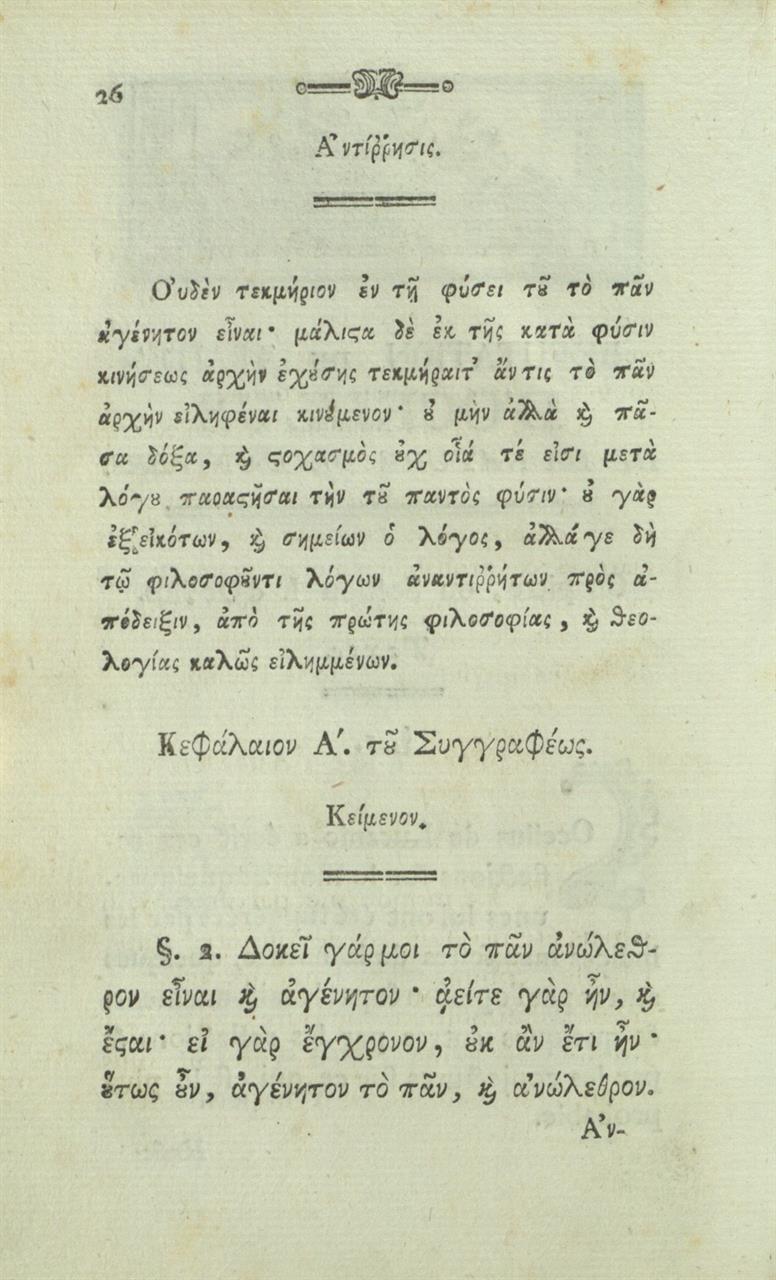 26
Ἀντίῤῥησις.
Οὐδὲν τεκμήριον ἐν τῇ φύσει τȣ̃ τὸ πᾶν
ἀγένητον εἶναι· μάλιϛα δὲ ἐκ τῆς κατὰ φύσιν
κινήσεως ἀρχὴν ἐχȣ́σης τεκμήραιτ' ἄν τις τὸ πᾶν
ἀρχὴν εἰληφέναι κινȣ́μενον· ȣ̓ μὴν ἀλλὰ ϗ πᾶ-
σα δόξα, ϗ ϛοχασμὸς ȣ̓χ οἷά τέ εἰσι μετὰ
λόγȣ παραϛῆσαι τὴν τȣ̃ παντὸς φύσιν· ȣ̓ γὰρ
ἐξ εἰκότων, ϗ σημείων ὁ λόγος, ἀλλάγε δὴ
τῷ φιλοσοφȣ̃ντι λόγων ἀναντιῤῥήτων πρὸς ἀ-
πόδειξιν, ἀπὸ τῆς πρώτης φιλοσοφίας, ϗ θεο-
λογίας καλῶς εἰλημμένων.
Κεφάλαιον Α'. τȣ̃ Συγγραφέως.
Κείμενον.
§. 2. Δοκεῖ γάρ μοι τὸ πᾶν ἀνώλεθ-
ρον εἶναι ϗ ἀγένητον· ἀείτε γὰρ ἦν, ϗ
ἔϛαι· εἰ γὰρ ἔγχρονον, ȣ̓κ ἂν ἔτι ἦν·
ȣ̔́τως ȣ̓͂ν, ἀγένητον τὸ πᾶν, ϗ ἀνώλεθρον.
Ἀν-